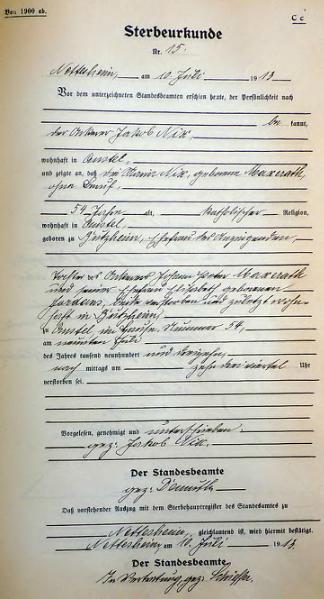 Von 1900 ab.
C c
Sterbeurkunde
Nr. 15.
Nettersheim, am 10. Juli 1913
Vor dem unterzeichneten Standesbeamten erschien heute, der Persönlichkeit nach
be kannt,
der Ackerer Jakob Nix
wohnhaft in
und zeigte an, daß Nix, geborene Maxrath
ohne Beruf
54 Jahre alt, katholischer Religion,
wohnhaft in
geboren zu Ehefrau des Anzeigenden,
Tochter des Ackerers Johann Peter Maxrath
und seiner Ehefrau Elisabeth geborenen
verstorben und zuletzt wohn
haft in
zu Hause Nummer 54,
am neunten Juli
des Jahres tausend neunhundert und dreizehn,
nach mittags um zehn drei viertel Uhr
verstorben sei.
Vorgelesen, genehmigt und unterschrieben
gez. Jakob Nix.
Der Standesbeamte
gez.
Daß vorstehender Auszug mit dem Sterbehauptregister des Standesamtes zu
Nettersheim, gleichlautend ist, wird hiermit bestätigt.
Nettersheim, am 10. Juli 1913.
Der Standesbeamte
In Vertretung, gez.